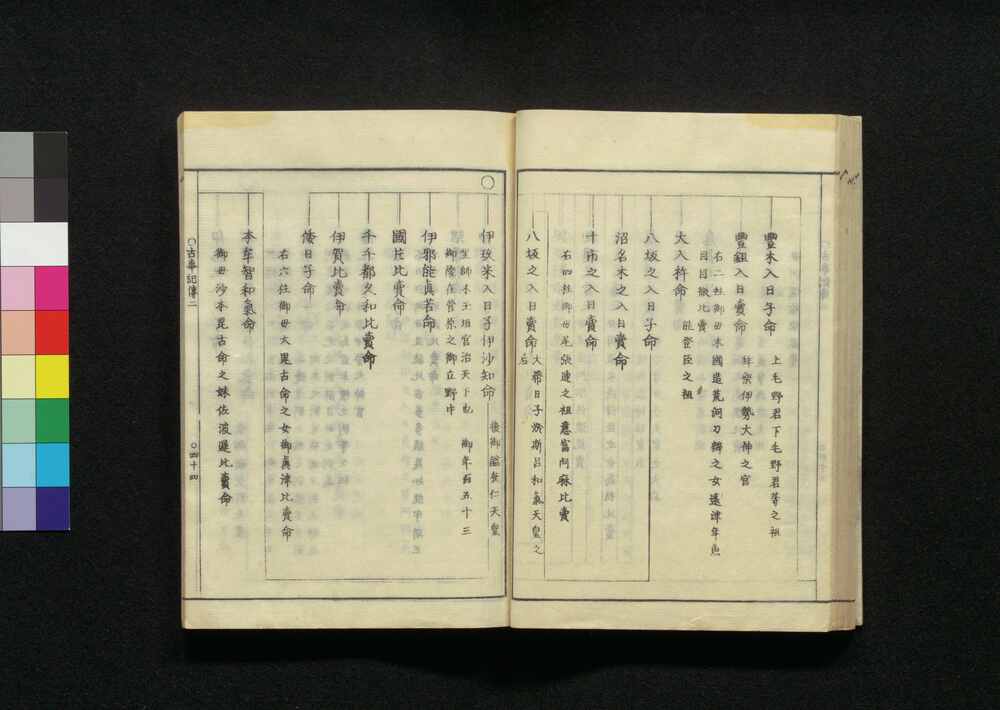 豐木入日子命
上毛野君下毛野君等之祖
豐鉏入日賣命
拜祭伊勢大神之宮
右二柱御毋木國造荒河刀辨之女遠津年魚
目目微比賣
大入杵命
能登臣之祖
八坂之入日子命
沼名木之入日賣命
十市之入日賣命
右四柱御毋尾張連之祖意富阿麻比賣
八坂之入日賣命
大帶日子淤斯呂和氣天皇之
后
○
伊玖米入日子伊沙知命
後御謚垂仁天皇
坐師木玉垣宮治天下也 御年百五十三
御陵在菅原之御立野中
伊邪能眞若命
國片比賣命
千千都久和比賣命
伊賀比賣命
倭日子命
右六柱御毋大毘古命之女御眞津比賣命
本牟智和氣命
御毋沙本毘古命之妹佐波遲比賣命
○古事記傳二
○四十四